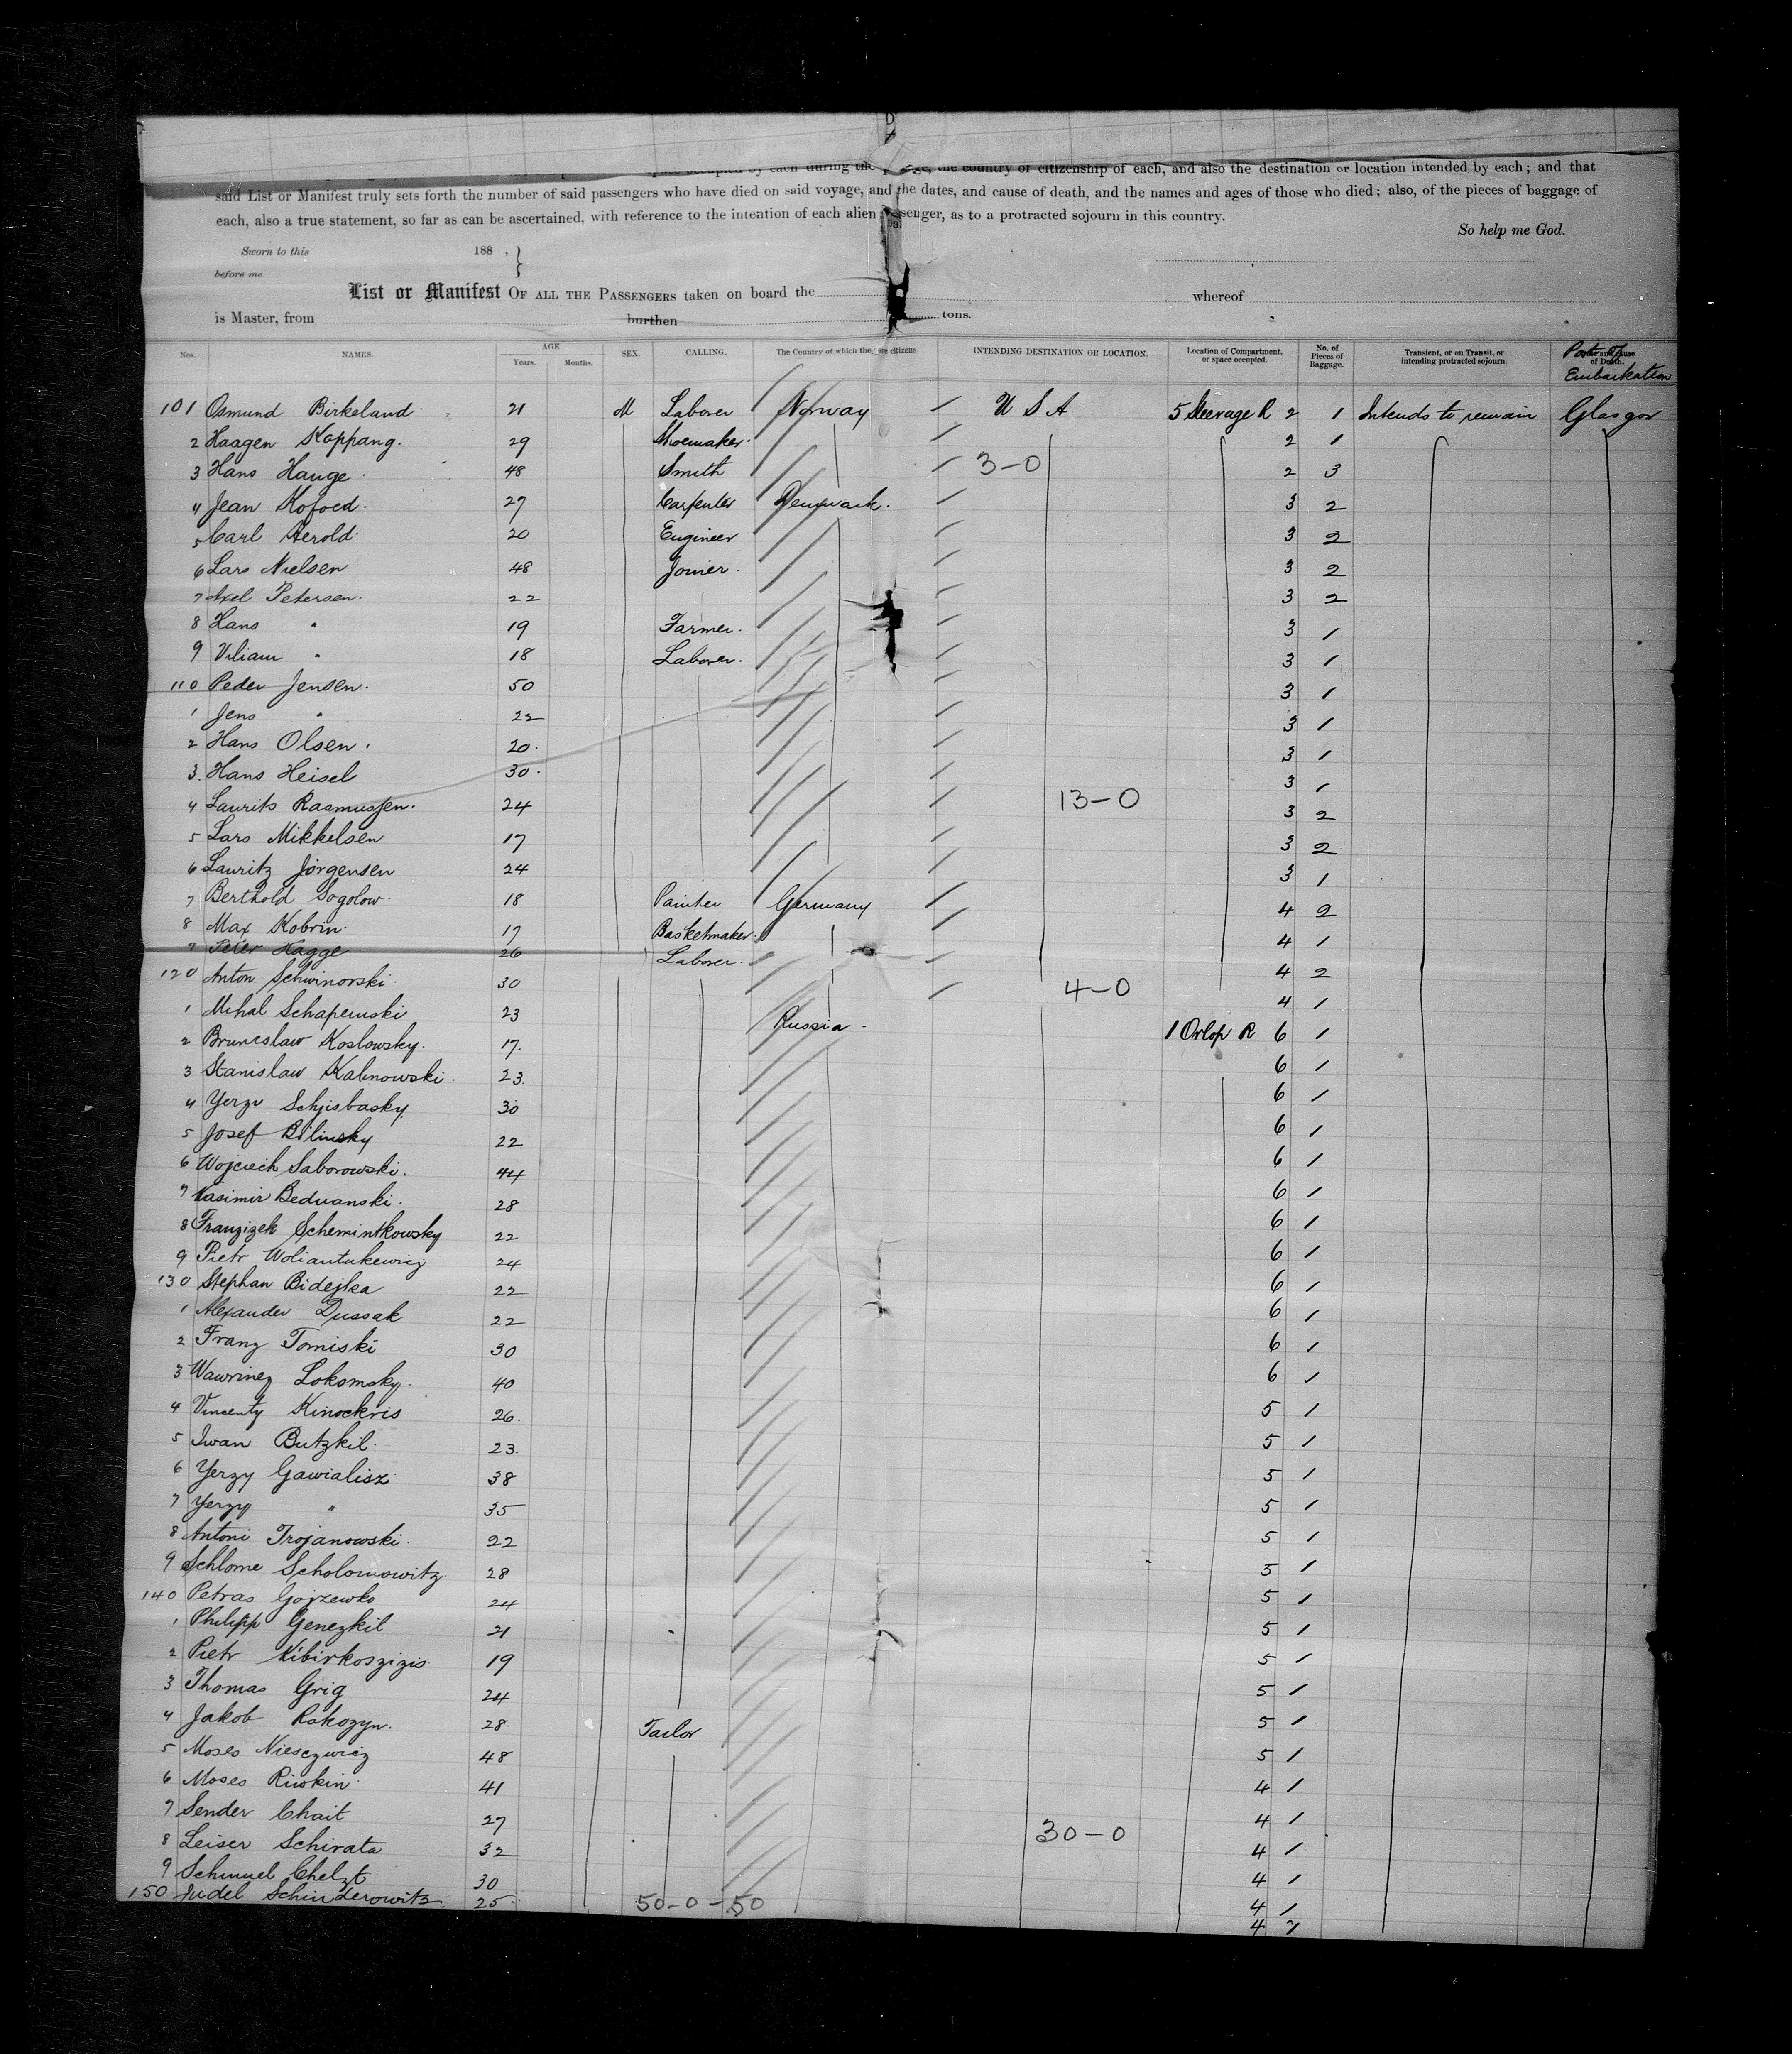 occupied by each during the passage, the country of citizenship of each, and also the destination or location intended by each; and that
said List or Manifest truly sets forth the number of said passengers who have died on said voyage, and the dates, and cause of death, and the names and ages of those who died; also, of the pieces of baggage of
each, also a true statement, so far as can be ascertained, with reference to the intention of each alien passenger, as to a protracted sojourn in this country.
So help me God.
Sworn to this 188 .
before me
List or Manifest OF ALL THE PASSENGERS taken on board the whereof
is Master, from burthen tons.
Nos. NAMES. AGE Years. Months. SEX. CALLING. The Country of which they are citizens. INTENDING DESTINATION OR LOCATION. Location of Compartment, or space occupied. No. of Pieces of Baggage. Transient, or on Transit, or intending protracted sojourn. Port of Embarkation
101 Osmund Birkeland 21 M Laborer Norway U S A 5 Steerage R 2 1 Intends to remain Glasgow
2 Haagen Koppang. 29 Shoemaker 2 1
3 Hans Hauge 48 Smith 3-0 2 3
4 Jean Kofoed 27 Carpenter Denmark. 3 2
5 Carl Herold 20 Engineer 3 2
6 Lars Nielsen 48 Joiner. 3 2
7 Axel Petersen. 22 3 2
8 Hans " 19 Farmer. 3 1
9 Viliam " 18 Laborer. 3 1
110 Peder Jensen. 50 3 1
1 Jens " 22 3 1
2 Hans Olsen. 20. 3 1
3. Hans Heisel 30. 3 1
4 Laurits Rasmussen. 24 13-0 3 2
5 Lars Mikkelsen 17 3 2
6 Lauritz Jorgensen 24 3 1
7 Berthold Sogolow 18 Painter Germany 4 2
8 Max Kobrin 17 Basketmaker. 4 1
9 Peter Hagge 26 Laborer. 4 2
120 Anton Schwinorski 30 4-0 4 1
1 Mihal Schapemski 23 Russia 1 Orlop R 6 1
2 Bruneslaw Koslowsky. 17. 6 1
3 Stanislaw Kalinowski. 23. 6 1
4 Yerzu Schjisbasky 30 6 1
5 Josef Bilinsky 22 6 1
6 Wojciech Saborowski. 44 6 1
7 Kasimir Beduanski. 28 6 1
8 Franzizek Schemintkowsky 22 6 1
9 Pietr Woliantukewicz 24 6 1
130 Stephan Bidejka 22 6 1
1 Alexander Dussak 22 6 1
2 Franz Tomiski 30 6 1
3 Wawrinez Lokomsky. 40 5 1
4 Vincenty Kinockris 26. 5 1
5 Iwan Butzkil 23. 5 1
6 Yerzy Gawialisz 38 5 1
7 Yerzy " 35 5 1
8 Antoni Trojanowski. 22 5 1
9 Schlome Scholomowitz 28 5 1
140 Petras Gojzewko 24 5 1
1 Philipp Genezkil 21 5 1
2 Pietr Kibirkoszizis 19 5 1
3 Thomas Grig 24 5 1
4 Jakob Rakozyn. 28 Tailor 5 1
5 Moses Niesczwicz 48 5 1
6 Moses Riwkin 41 4 1
7 Sender Chait 27 4 1
8 Leiser Schirata 32 30-0 4 1
9 Schmuel Chelzt 30 4 1
150 Judel Schinderowitz. 25 50-0-50 4 1
4